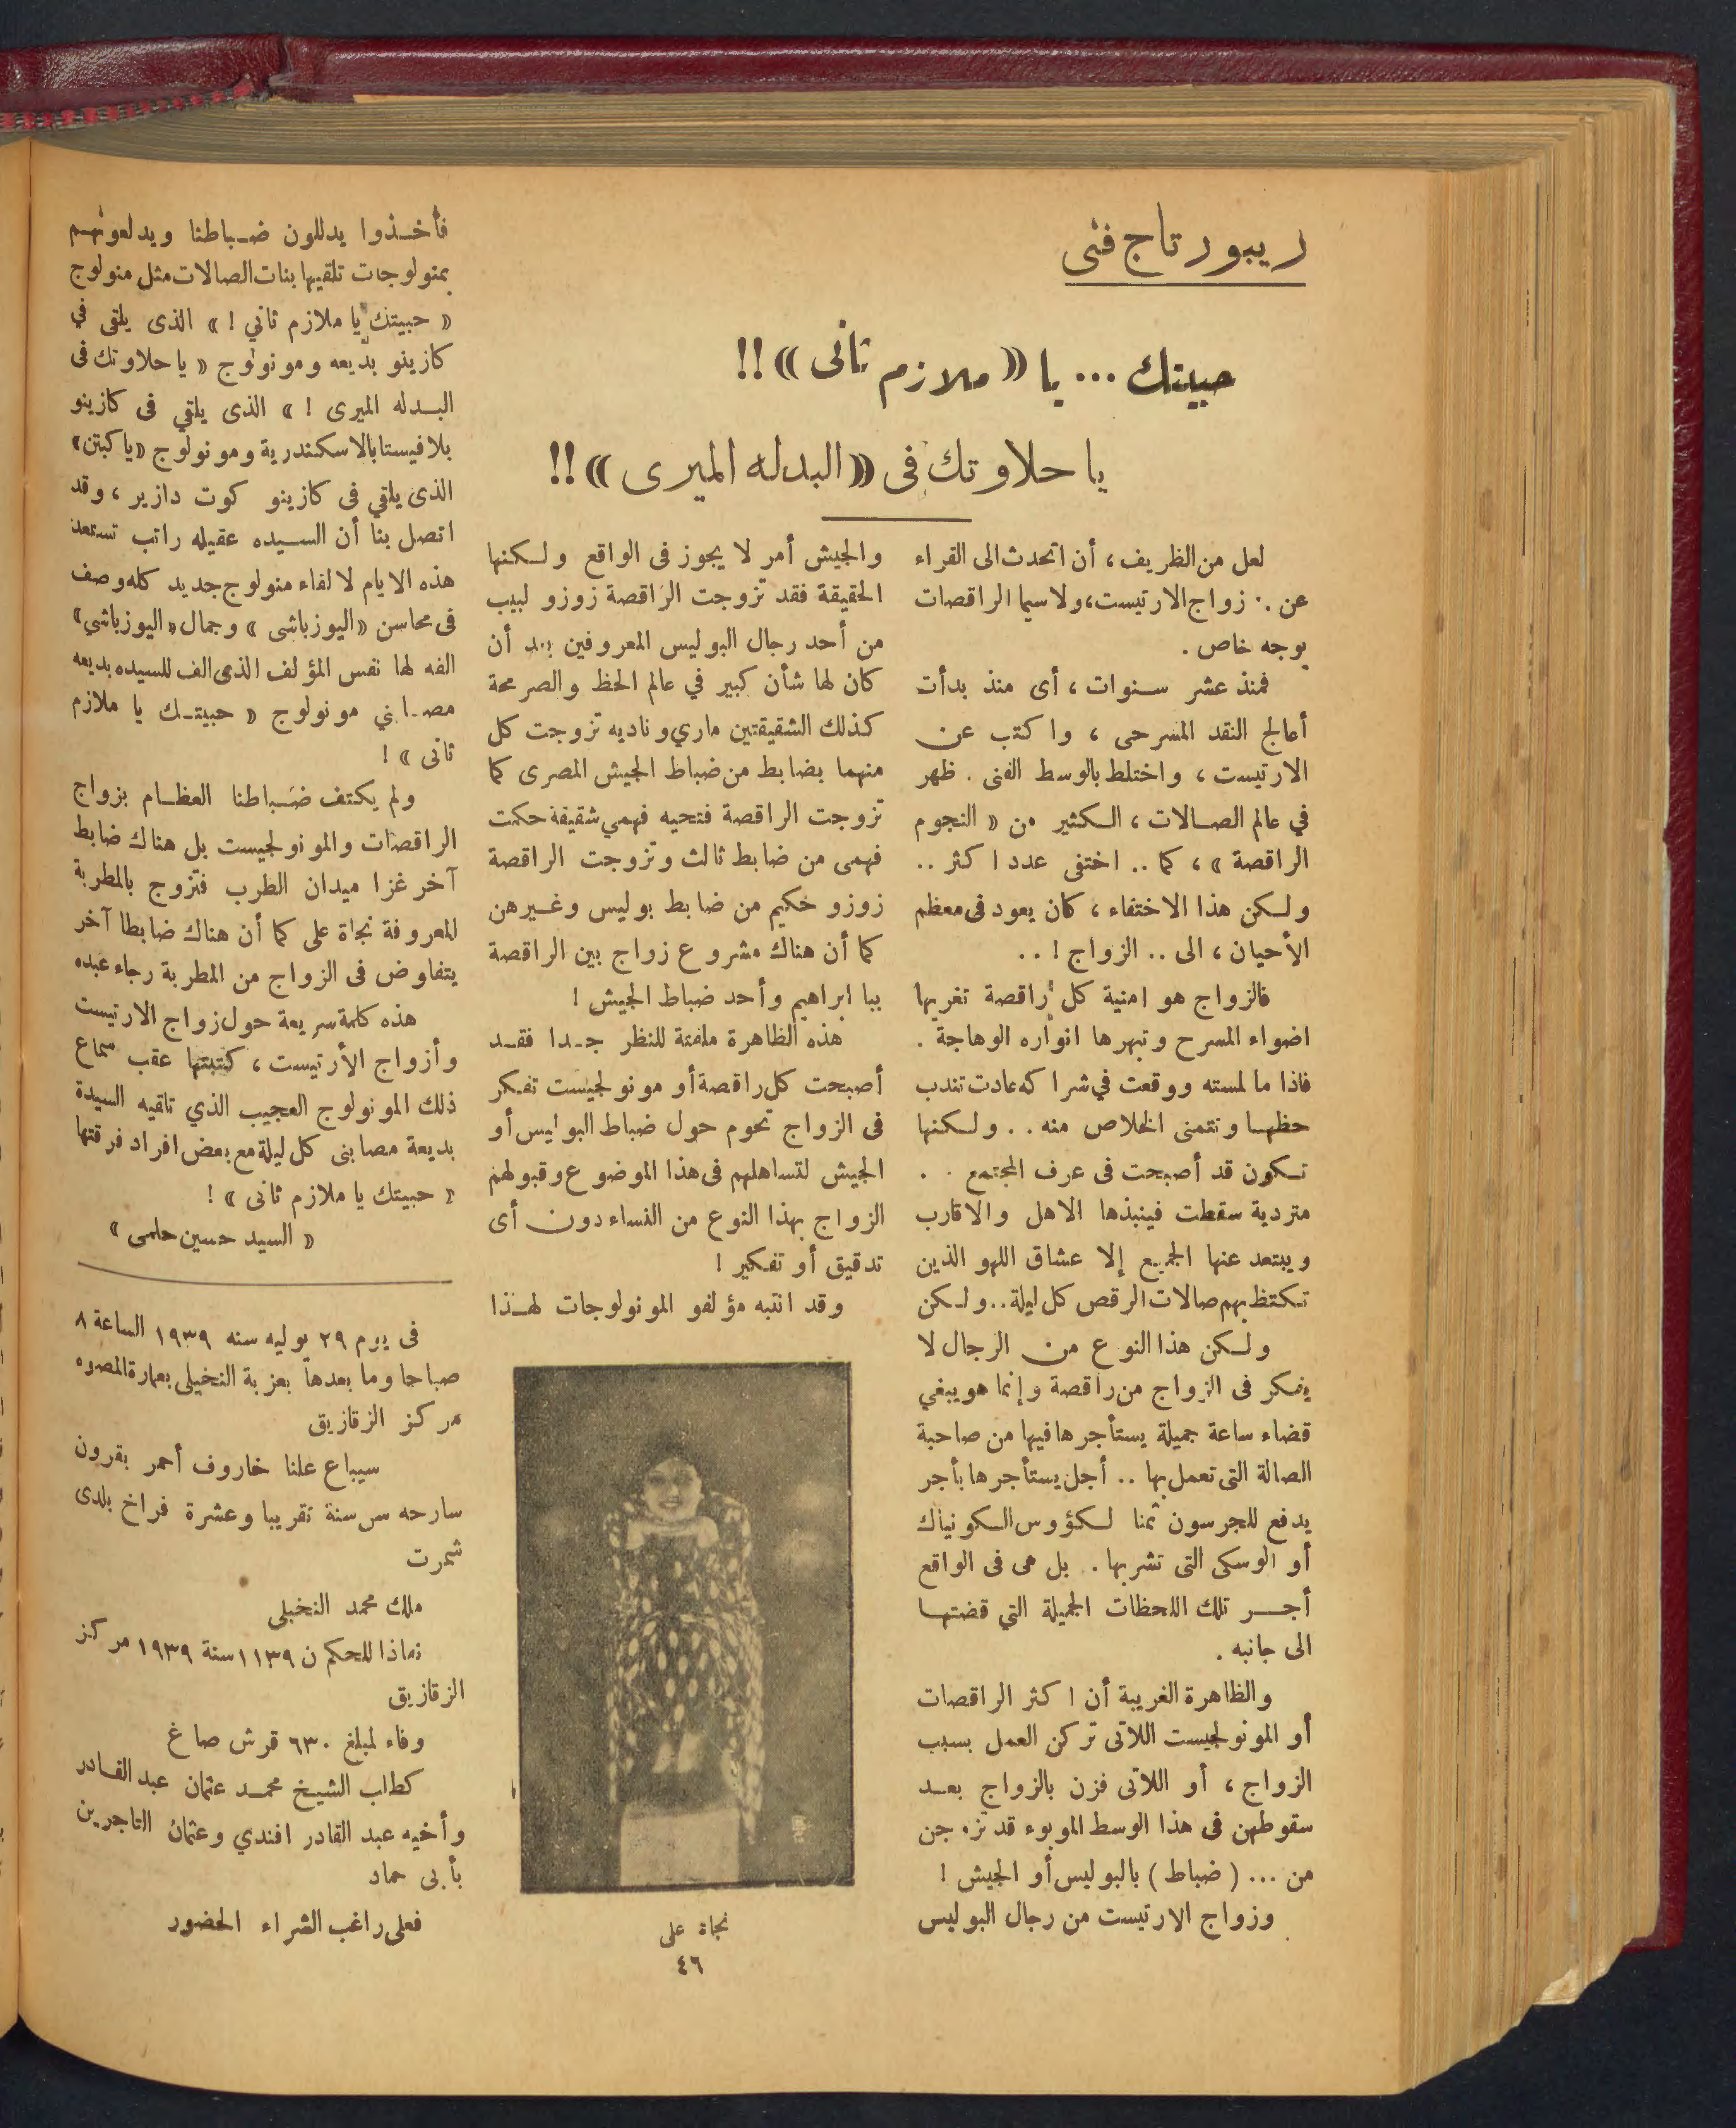 ريبورتاج فنى
حبيتك ... يا «ملازم ثانى»!!
يا حلاوتك فى «البدله الميرى»!!
لعل من الظريف، أن اتحدث الى القراء
عن .. زواج الارتيست، ولاسيما الراقصات
بوجه خاص .
فمنذ عشر سنوات، أى منذ بدأت
أعالج النقد المسرحى، واكتب عن
الارتيست، واختلط بالوسط الفنى . ظهر
في عالم الصالات، الكثير من «النجوم
الراقصة»، كما .. اختفى عدد اكثر ..
ولكن هذا الاختفاء، كان يعود فى معظم
الأحيان، الى .. الزواج ! ..
فالزواج هو امنية كل راقصة تغريها
اضواء المسرح وتبهرها انواره الوهاجة .
فاذا ما لمسته ووقعت في شراكه عادت تندب
حظها وتتمنى الخلاص منه .. ولكنها
تكون قد أصبحت فى عرف المجتمع . .
متردية سقطت فينبذها الاهل والاقارب
ويبتعد عنها الجميع إلا عشاق اللهو الذين
تكتظ بهم صالات الرقص كل ليلة .. ولكن
ولكن هذا النوع من الرجال لا
يفكر فى الزواج من راقصة وإنما هو يبغي
قضاء ساعة جميلة يستأجرها فيها من صاحبة
الصالة التى تعمل بها .. أجل يستأجرها بأجر
يدفع للجرسون ثمنا لكؤوس الكونياك
أو الوسكى التى تشربها . بل هى فى الواقع
أجر تلك اللحظات الجميلة التي قضتها
الى جانبه .
والظاهرة الغريبة أن اكثر الراقصات
أو المونولجيست اللاتى تركن العمل بسبب
الزواج، أو اللاتى فزن بالزواج بعد
سقوطهن فى هذا الوسط الموبوء قد تزوجن
من ... (ضباط) بالبوليس أو الجيش !
وزواج الارتيست من رجال البوليس
والجيش أمر لا يجوز فى الواقع ولكنها
الحقيقة فقد تزوجت الراقصة زوزو لبيب
من أحد رجال البوليس المعروفين بعد أن
كان لها شأن كبير في عالم الحظ والصرمحة
كذلك الشقيقتين ماري وناديه تزوجت كل
منهما بضابط من ضباط الجيش المصرى كما
تزوجت الراقصة فتحيه فهمي شقيقة حكمت
فهمى من ضابط ثالث وتزوجت الراقصة
زوزو حكيم من ضابط بوليس وغيرهن
كما أن هناك مشروع زواج بين الراقصة
ببا ابراهيم وأحد ضباط الجيش !
هذه الظاهرة ملفتة للنظر جدا فقد
أصبحت كل راقصة أو مونولجيست تفكر
فى الزواج تحوم حول ضباط البوليس أو
الجيش لتساهلهم فى هذا الموضوع وقبولهم
الزواج بهذا النوع من النساء دون أى
تدقيق أو تفكير !
وقد انتبه مؤلفو المونولوجات لهذا
نجاة على
٤٦
فأخذوا يدللون ضباطنا ويدلعونهم
بمنولوجات تلقيها بنات الصالات مثل منولوج
«حبيتك يا ملازم ثاني !» الذى يلقى في
كازينو بديعه ومونولوج «يا حلاوتك فى
البدله الميرى !» الذى يلقي فى كازينو
بلافيستا بالاسكندرية ومونولوج «يا كبتن»
الذى يلقي فى كازينو كوت دازير، وقد
اتصل بنا أن السيده عقيله راتب تستعد
هذه الايام لالقاء منولوج جديد كله وصف
فى محاسن «اليوزباشى» وجمال «اليوزباشي»
الفه لها نفس المؤلف الذى الف للسيده بديعه
مصابني مونولوج «حبيتك يا ملازم
ثانى» !
ولم يكتف ضباطنا العظام بزواج
الراقصات والمونولجيست بل هناك ضابط
آخر غزا ميدان الطرب فتزوج بالمطربة
المعروفة نجاة على كما أن هناك ضابطا آخر
يتفاوض فى الزواج من المطربة رجاء عبده
هذه كلمة سريعة حول زواج الارتيست
وأزواج الأرتيست، كتبتها عقب سماع
ذلك المونولوج العجيب الذي تلقيه السيدة
بديعة مصابنى كل ليلة مع بعض افراد فرقتها
«حبيتك يا ملازم ثانى» !
«السيد حسين حلمى»
فى يوم ٢٩ يوليه سنه ١٩٣٩ الساعة ٨
صباحا وما بعدها بعزبة النخيلى بعمارة المصره
مركز الزقازيق
سيباع علنا خاروف أحمر بقرون
سارحه سن سنة تقريبا وعشرة فراخ بلدى
شمرت
ملك محمد النخيلى
نفاذا للحكم ن ١١٣٩ سنة ١٩٣٩ مركز
الزقازيق
وفاء لمبلغ ٦٣٠ قرش صاغ
كطلب الشيخ محمد عثمان عبد القادر
وأخيه عبد القادر افندي وعثمان التاجرين
بأبى حماد
فعلى راغب الشراء الحضور